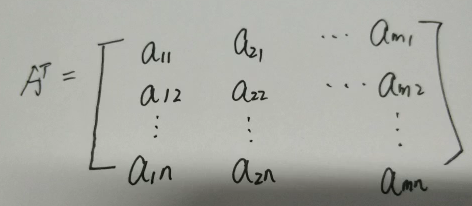 Aᵀ = [ a₁₁ a₂₁ ⋯ aₘ₁
a₁₂ a₂₂ ⋯ aₘ₂
⋮ ⋮ ⋮
a₁ₙ a₂ₙ aₘₙ ]